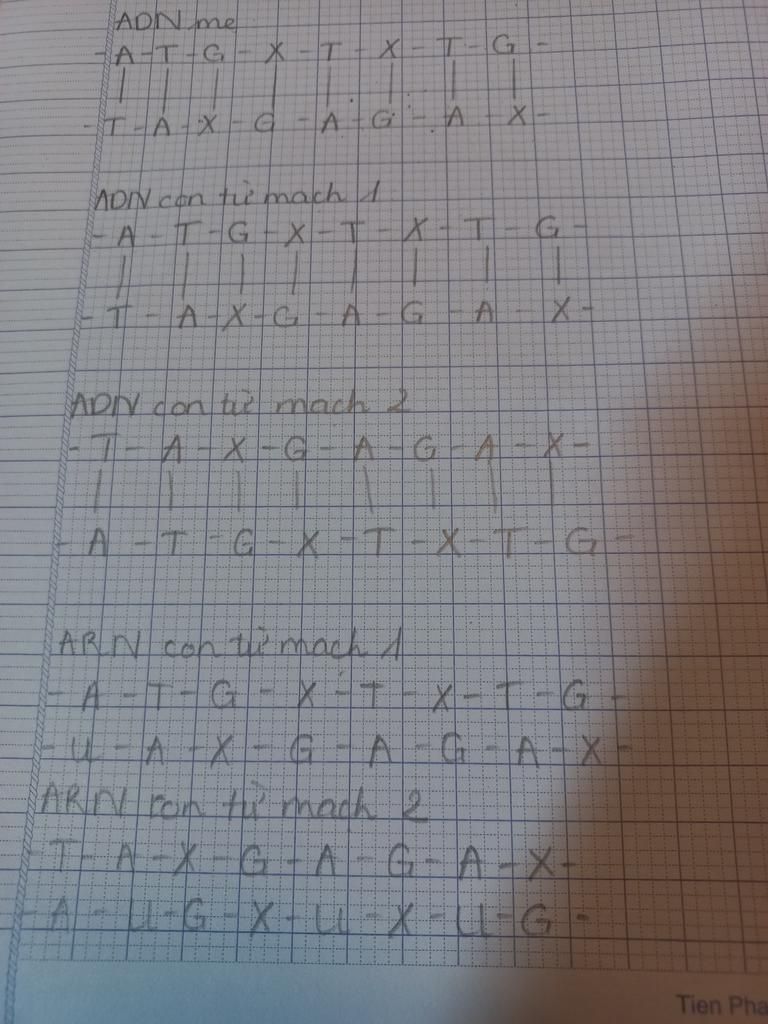 ADN mẹ
- A - T - G - X - T - X - T - G -
- T - A - X - G - A - G - A - X -
ADN con từ mạch 1
- A - T - G - X - T - X - T - G -
- T - A - X - G - A - G - A - X -
ADN con từ mạch 2
- T - A - X - G - A - G - A - X -
- A - T - G - X - T - X - T - G -
ARN con từ mạch 1
- A - T - G - X - T - X - T - G -
- U - A - X - G - A - G - A - X -
ARN con từ mạch 2
- T - A - X - G - A - G - A - X -
- A - U - G - X - U - X - U - G -
Tien Pha